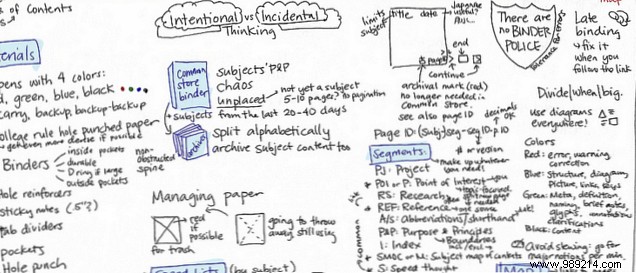 s of contents
Intentional vs Incidental
Thinking
limits
subject
title date
Japanese
useful?
A/S...
end
continue
archival mark (red)
no longer needed in
Common store.
see also page ID
There are
no BINDER
POLICE
Late
binding
fix it
when you
follow the link
erials
pens with 4 colors:
d, green, blue, black
carry, backup, backup-backup
ollege rule hole punched paper
Binders
inside pockets
durable
D ring if large
outside pockets
non-
obstructed
spine
Hole reinforcers
sticky notes (.5")
tab dividers
pockets
Hole punch
Common
store
binder
subjects' P&P
chaos
unplaced
not yet a subject
5-10 pages? to pagination
subjects from the last 20-40 days
archive
split alphabetically
archive subject content too
Managing paper
red
if
possible
for trash
going to throw
away still using
Speed Lists (by subject)
Page ID: (Subj)seg-seg ID-p.10
decimals
OK
# or region
Segments:
make up whatever
you need
PJ: Project
POI or P: Point of Interest
RS: Research
REF: Reference
A/S: Abbreviations/shorthand
P&P: Purpose & Principles
I: Index
SMOC or M: Subject map of contents
S: Speed thought
common
Divide/when/big.
Use diagrams
everywhere!
Colors
Red: error, warning,
correction
Blue: Structure, diagram,
picture, links, keys
Green: Meta, definition,
naming, brief notes,
glyphs, annotations
clarifications
Black: Content
Avoid slewing: go for
Map